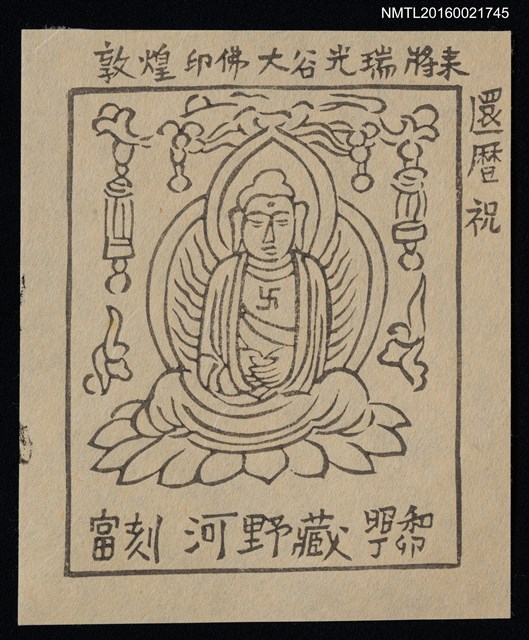 NMTL20160021745
敦煌印佛大谷光瑞將来
還暦祝
富刻 河野藏 昭和丁卯